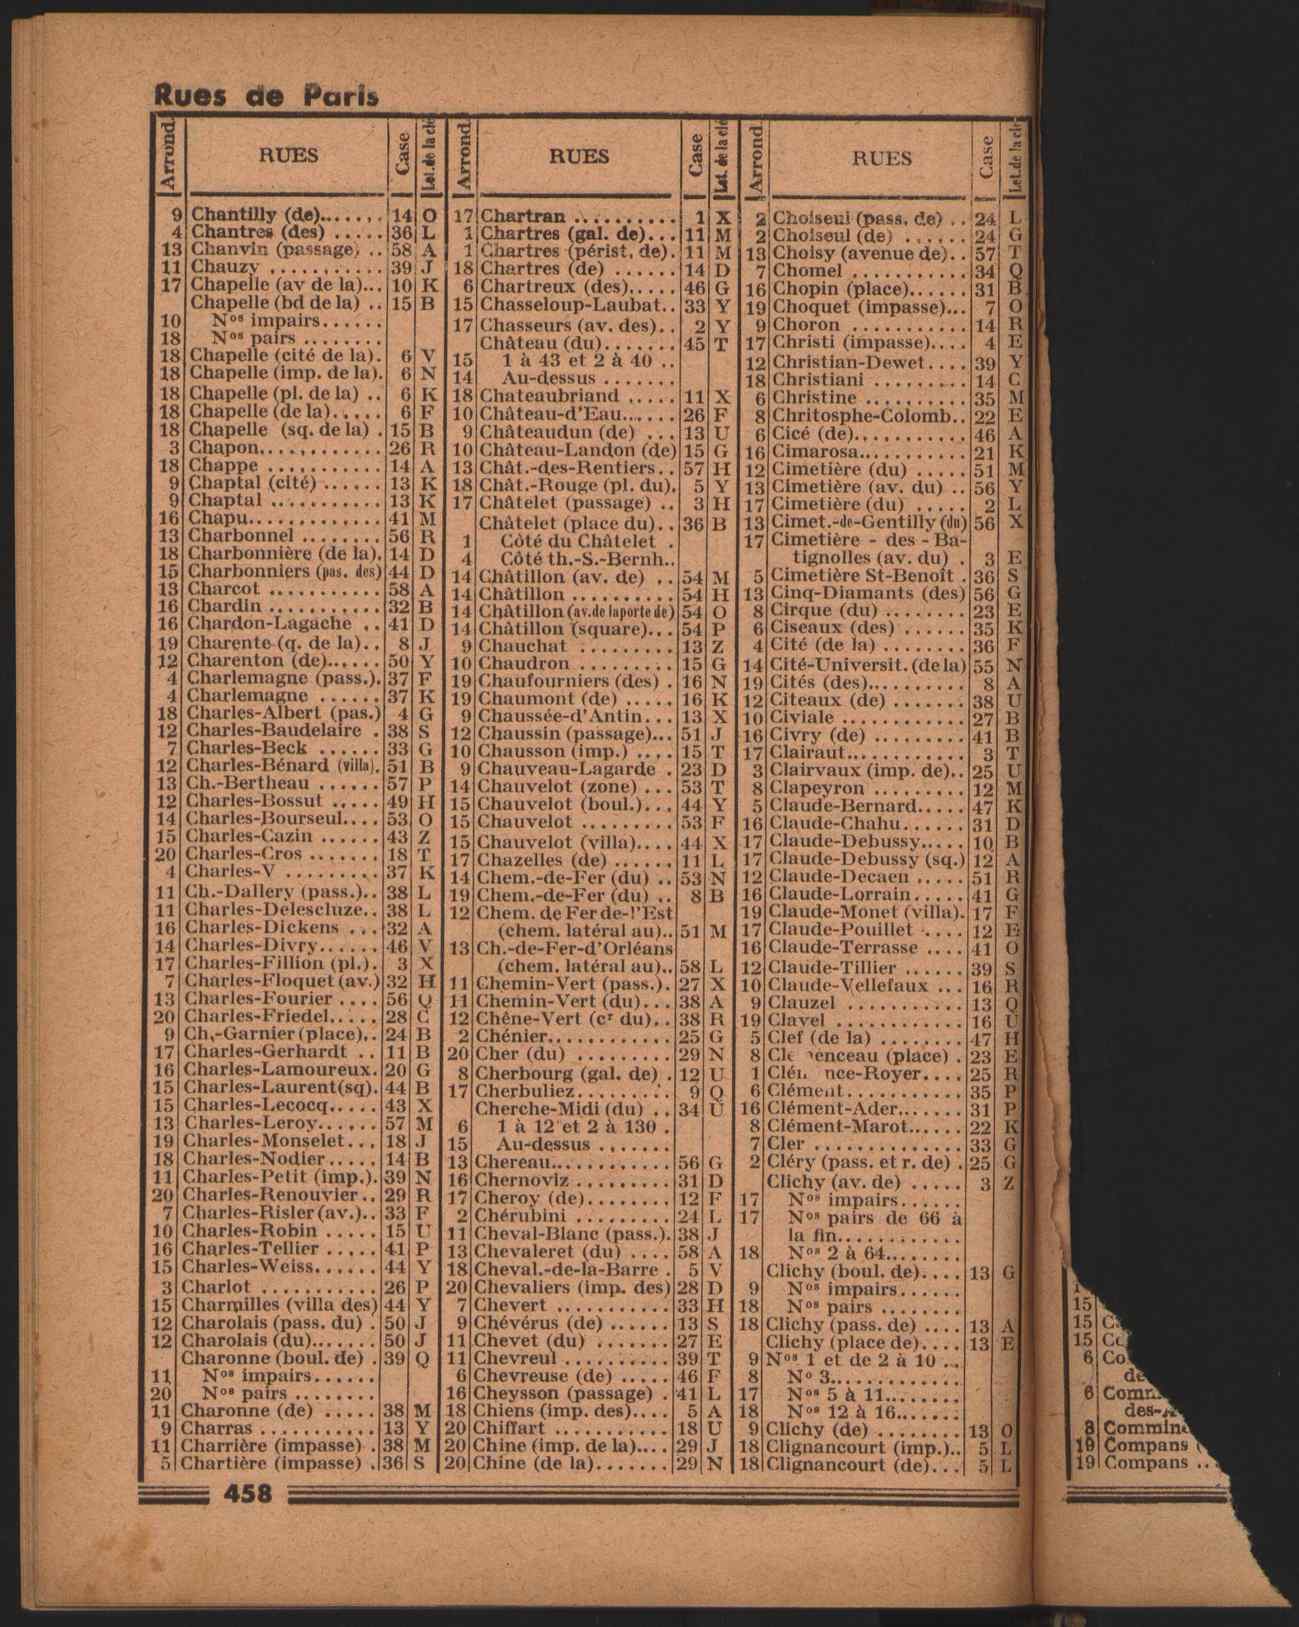 Rues de Paris
Arrond. RUES Case Let. de la clé
9 Chantilly (de)....... 14 O
4 Chantres (des) ..... 36 L
13 Chanvin (passage) .. 58 A
11 Chauzy ........... 39 J
17 Chapelle (av de la)... 10 K
Chapelle (bd de la) .. 15 B
10 Nos impairs......
18 Nos pairs ........
18 Chapelle (cité de la). 6 V
18 Chapelle (imp. de la). 6 N
18 Chapelle (pl. de la) .. 6 K
18 Chapelle (de la)..... 6 F
18 Chapelle (sq. de la) . 15 B
3 Chapon............ 26 R
18 Chappe ........... 14 A
9 Chaptal (cité) ...... 13 K
9 Chaptal ........... 13 K
16 Chapu............. 41 M
13 Charbonnel ........ 56 R
18 Charbonnière (de la). 14 D
15 Charbonniers (pas. des) 44 D
13 Charcot ........... 58 A
16 Chardin ........... 32 B
16 Chardon-Lagache .. 41 D
19 Charente (q. de la).. 8 J
12 Charenton (de)...... 50 Y
4 Charlemagne (pass.). 37 F
4 Charlemagne ...... 37 K
18 Charles-Albert (pas.) 4 G
12 Charles-Baudelaire . 38 S
7 Charles-Beck ...... 33 G
12 Charles-Bénard (villa). 51 B
13 Ch.-Bertheau ...... 57 P
12 Charles-Bossut ..... 49 H
14 Charles-Bourseul.... 53 O
15 Charles-Cazin ...... 43 Z
20 Charles-Cros ....... 18 T
4 Charles-V ......... 37 K
11 Ch.-Dallery (pass.).. 38 L
11 Charles-Delescluze.. 38 L
16 Charles-Dickens ... 32 A
14 Charles-Divry...... 46 V
17 Charles-Fillion (pl.). 3 X
7 Charles-Floquet (av.) 32 H
13 Charles-Fourier .... 56 Q
20 Charles-Friedel..... 28 C
9 Ch.-Garnier (place).. 24 B
17 Charles-Gerhardt .. 11 B
16 Charles-Lamoureux. 20 G
15 Charles-Laurent(sq). 44 B
15 Charles-Lecocq..... 43 X
13 Charles-Leroy...... 57 M
19 Charles-Monselet... 18 J
18 Charles-Nodier..... 14 B
11 Charles-Petit (imp.). 39 N
20 Charles-Renouvier.. 29 R
7 Charles-Risler (av.).. 33 F
10 Charles-Robin ..... 15 U
16 Charles-Tellier ..... 41 P
15 Charles-Weiss...... 44 Y
3 Charlot ........... 26 P
15 Charmilles (villa des) 44 Y
12 Charolais (pass. du) . 50 J
12 Charolais (du)....... 50 J
Charonne (boul. de) . 39 Q
11 Nos impairs......
20 Nos pairs ........
11 Charonne (de) ..... 38 M
9 Charras ........... 13 Y
11 Charrière (impasse) . 38 M
5 Chartière (impasse) . 36 S
Arrond. RUES Case Let. de la clé
17 Chartran .......... 1 X
1 Chartres (gal. de)... 11 M
1 Chartres (périst. de). 11 M
18 Chartres (de) ...... 14 D
6 Chartreux (des)..... 46 G
15 Chasseloup-Laubat.. 33 Y
17 Chasseurs (av. des).. 2 Y
Château (du)....... 45 T
15 1 à 43 et 2 à 40 ..
14 Au-dessus .......
18 Chateaubriand ..... 11 X
10 Château-d'Eau...... 26 F
9 Châteaudun (de) ... 13 U
10 Château-Landon (de) 15 G
13 Chât.-des-Rentiers.. 57 H
18 Chât.-Rouge (pl. du). 5 Y
17 Châtelet (passage) .. 3 H
Châtelet (place du).. 36 B
1 Côté du Châtelet .
4 Côté th.-S.-Bernh..
14 Châtillon (av. de) .. 54 M
14 Châtillon ......... 54 H
14 Châtillon (av. de la porte de) 54 O
14 Châtillon (square)... 54 P
9 Chauchat ......... 13 Z
10 Chaudron ......... 15 G
19 Chaufourniers (des) . 16 N
19 Chaumont (de) ..... 16 K
9 Chaussée-d'Antin... 13 X
12 Chaussin (passage)... 51 J
10 Chausson (imp.) .... 15 T
9 Chauveau-Lagarde . 23 D
14 Chauvelot (zone) ... 53 T
15 Chauvelot (boul.)... 44 Y
15 Chauvelot ......... 53 F
15 Chauvelot (villa).... 44 X
17 Chazelles (de) ...... 11 L
14 Chem.-de-Fer (du) .. 53 N
19 Chem.-de-Fer (du) .. 8 B
12 Chem. de Fer de-l'Est
(chem. latéral au).. 51 M
13 Ch.-de-Fer-d'Orléans
(chem. latéral au).. 58 L
11 Chemin-Vert (pass.). 27 X
11 Chemin-Vert (du)... 38 A
12 Chêne-Vert (cr du).. 38 R
2 Chénier............ 25 G
20 Cher (du) ......... 29 N
8 Cherbourg (gal. de) . 12 U
17 Cherbuliez......... 9 Q
Cherche-Midi (du) .. 34 U
6 1 à 12 et 2 à 130 .
15 Au-dessus .......
13 Chereau............ 56 G
16 Chernoviz ......... 31 D
17 Cheroy (de)........ 12 F
2 Chérubini ......... 24 L
11 Cheval-Blanc (pass.). 38 J
13 Chevaleret (du) .... 58 A
18 Cheval.-de-la-Barre . 5 V
20 Chevaliers (imp. des) 28 D
7 Chevert ........... 33 H
9 Chévérus (de) ...... 13 S
11 Chevet (du) ....... 27 E
11 Chevreul .......... 39 T
6 Chevreuse (de) ..... 46 F
16 Cheysson (passage) . 41 L
18 Chiens (imp. des).... 5 A
20 Chiffart ........... 18 U
20 Chine (imp. de la).... 29 J
20 Chine (de la)....... 29 N
Arrond. RUES Case Let. de la clé
2 Choiseul (pass. de) .. 24 L
2 Choiseul (de) ...... 24 G
13 Choisy (avenue de).. 57 T
7 Chomel ........... 34 Q
16 Chopin (place)...... 31 B
19 Choquet (impasse)... 7 O
9 Choron ........... 14 R
17 Christi (impasse).... 4 E
12 Christian-Dewet.... 39 Y
18 Christiani ......... 14 C
6 Christine .......... 35 M
8 Chritosphe-Colomb.. 22 E
6 Cicé (de)........... 46 A
16 Cimarosa.......... 21 K
12 Cimetière (du) ..... 51 M
13 Cimetière (av. du) .. 56 Y
17 Cimetière (du) ..... 2 L
13 Cimet.-de-Gentilly (du) 56 X
17 Cimetière - des - Ba-
tignolles (av. du) . 3 E
5 Cimetière St-Benoît . 36 S
13 Cinq-Diamants (des) 56 G
8 Cirque (du) ........ 23 E
6 Ciseaux (des) ...... 35 K
4 Cité (de la) ........ 36 F
14 Cité-Universit. (de la) 55 N
19 Cités (des).......... 8 A
12 Citeaux (de) ....... 38 U
10 Civiale ............ 27 B
16 Civry (de) ......... 41 B
17 Clairaut........... 3 T
3 Clairvaux (imp. de).. 25 U
8 Clapeyron ......... 12 M
5 Claude-Bernard..... 47 K
16 Claude-Chahu...... 31 D
17 Claude-Debussy..... 10 B
17 Claude-Debussy (sq.) 12 A
12 Claude-Decaen ..... 51 R
16 Claude-Lorrain..... 41 G
19 Claude-Monet (villa). 17 F
17 Claude-Pouillet .... 12 E
16 Claude-Terrasse .... 41 O
12 Claude-Tillier ...... 39 S
10 Claude-Vellefaux ... 16 R
9 Clauzel ........... 13 Q
19 Clavel ............ 16 U
5 Clef (de la) ........ 47 H
8 Cle enceau (place) . 23 E
1 Clém nce-Royer.... 25 R
6 Clément........... 35 P
16 Clément-Ader...... 31 P
8 Clément-Marot...... 22 K
7 Cler .............. 33 G
2 Cléry (pass. et r. de) . 25 G
Clichy (av. de) ..... 3 Z
17 Nos impairs......
17 Nos pairs de 66 à
la fin............
18 Nos 2 à 64........
Clichy (boul. de).... 13 G
9 Nos impairs......
18 Nos pairs ........
18 Clichy (pass. de) .... 13 A
Clichy (place de).... 13 E
9 Nos 1 et de 2 à 10 ...
8 No 3.............
17 Nos 5 à 11........
18 Nos 12 à 16.......
9 Clichy (de) ........ 13 O
18 Clignancourt (imp.).. 5 L
18 Clignancourt (de)... 5 L
458
15
15
15
6 Co
de
6 Comm
des-
8 Commin
19 Compans
19 Compans ..